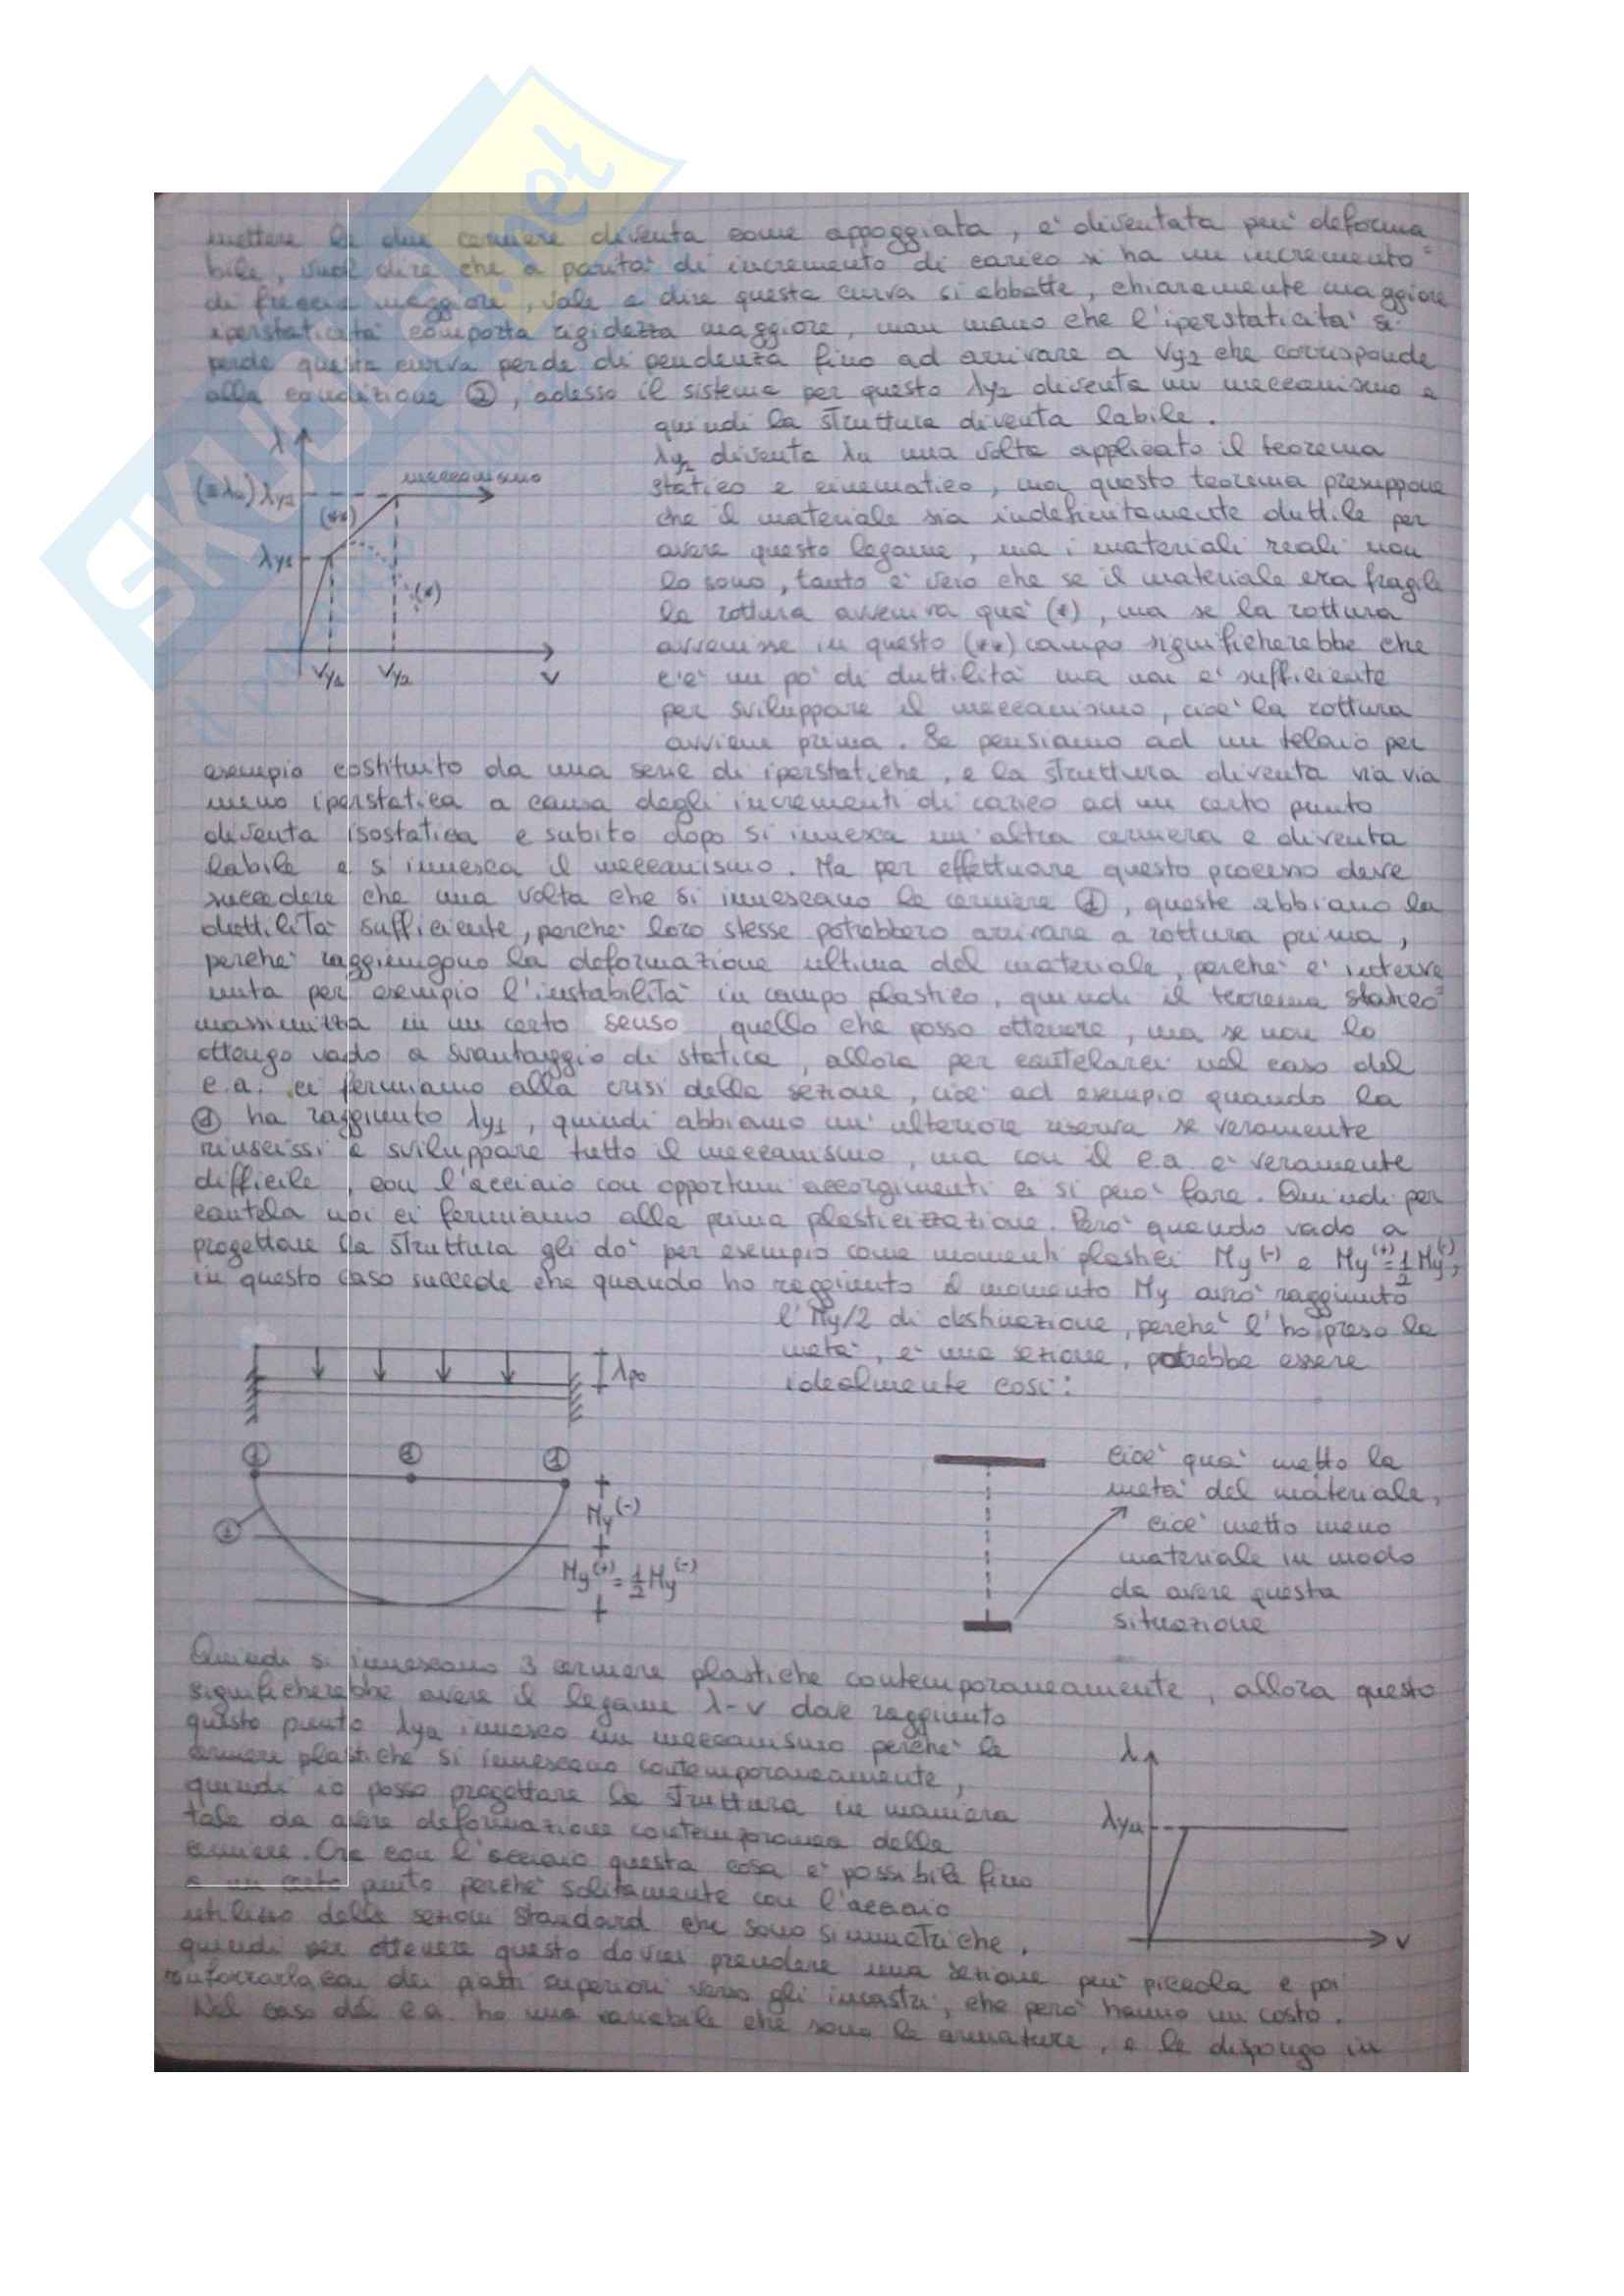 mettere le due cerniere diventa come appoggiata, e' diventata piu' deforma
bile, vuol dire che a parita' di incremento di carico si ha un incremento
di freccia maggiore, vale a dire questa curva si abbatte, chiaramente maggiore
iperstaticita' comporta rigidezza maggiore, man mano che l'iperstaticita' si
perde questa curva perde di pendenza fino ad arrivare a Vy2 che corrisponde
alla condizione ②, adesso il sistema per questo λy2 diventa un meccanismo e
quindi la struttura diventa labile.
λy2 diventa λu una volta applicato il teorema
statico e cinematico, ma questo teorema presuppone
che il materiale sia indefinitamente duttile per
avere questo legame, ma i materiali reali non
lo sono, tanto e' vero che se il materiale era fragile
la rottura avveniva qua' (*), ma se la rottura
avvenisse in questo (**) campo significherebbe che
c'e' un po' di duttilita' ma non e' sufficiente
per sviluppare il meccanismo, cioe' la rottura
avviene prima. Se pensiamo ad un telaio per
λ
(≡λu) λy2
meccanismo
(**)
λy1
(*)
Vy1 Vy2 V
esempio costituito da una serie di iperstatiche, e la struttura diventa via via
meno iperstatica a causa degli incrementi di carico ad un certo punto
diventa isostatica e subito dopo si innesca un'altra cerniera e diventa
labile e si innesca il meccanismo. Ma per effettuare questo processo deve
succedere che una volta che si innescano le cerniere ①, queste abbiano la
duttilita' sufficiente, perche' loro stesse potrebbero arrivare a rottura prima,
perche' raggiungono la deformazione ultima del materiale, perche' e' interve
nuta per esempio l'instabilita' in campo plastico, quindi il teorema statico
massimizza in un certo senso quello che posso ottenere, ma se non lo
ottengo vado a svantaggio di statica, allora per cautelarci nel caso del
c.a. ci fermiamo alla crisi della sezione, cioe' ad esempio quando la
① ha raggiunto λy1, quindi abbiamo un' ulteriore riserva se veramente
riuscissi a sviluppare tutto il meccanismo, ma con il c.a e' veramente
difficile, con l'acciaio con opportuni accorgimenti ci si puo' fare. Quindi per
cautela noi ci fermiamo alla prima plasticizzazione. Pero' quando vado a
progettare la struttura gli do' per esempio come momenti plastici My(-) e My(+)=1/2 My(-),
in questo caso succede che quando ho raggiunto il momento My avro' raggiunto
l'My/2 di destinazione, perche' l'ho preso la
meta', e' una sezione, potrebbe essere
idealmente cosi':
λpo
① ② ①
My(-)
②
My(+)=1/2 My(-)
cioe' qua' metto la
meta' del materiale,
cioe' metto meno
materiale in modo
da avere questa
situazione
Quindi si innescano 3 cerniere plastiche contemporaneamente, allora questo
significherebbe avere il legame λ-v dove raggiunto
questo punto λyu innesco un meccanismo perche' le
cerniere plastiche si innescano contemporaneamente,
quindi io posso progettare la struttura in maniera
tale da avere deformazione contemporanea delle
cerniere. Ora con l'acciaio questa cosa e' possibile fino
a un certo punto perche' solitamente con l'acciaio
utilizzo delle sezioni standard che sono simmetriche,
quindi per ottenere questo dovrei prendere una sezione piu' piccola e poi
rinforzarla con dei piatti superiori verso gli incastri, che pero' hanno un costo.
Nel caso del c.a. ho una variabile che sono le armature, e le dispongo in
λ
λyu
V
SKUOLA.net